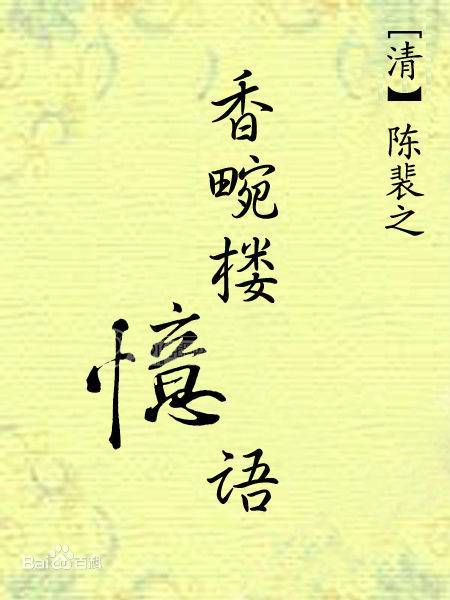 [清】陈裴之
香畹楼
憶
语
Bai百科